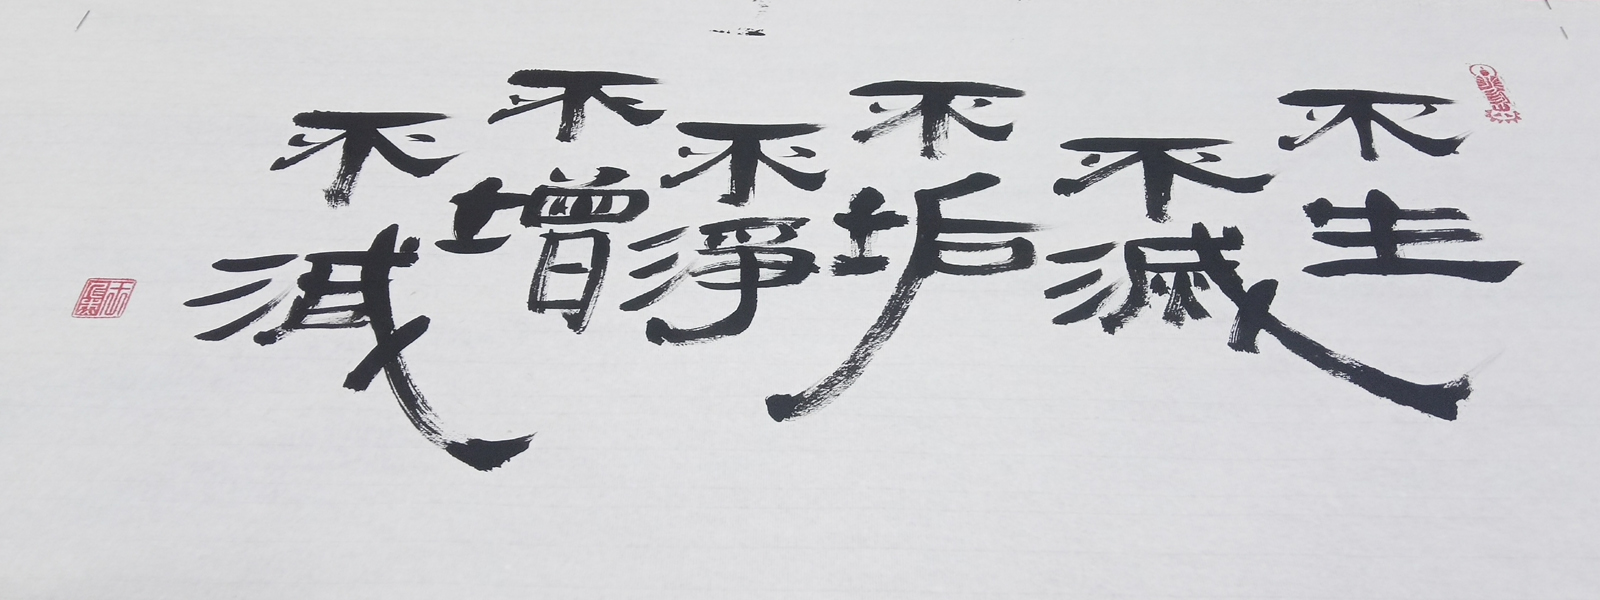 不生
不滅
不垢
不淨
不增
不減